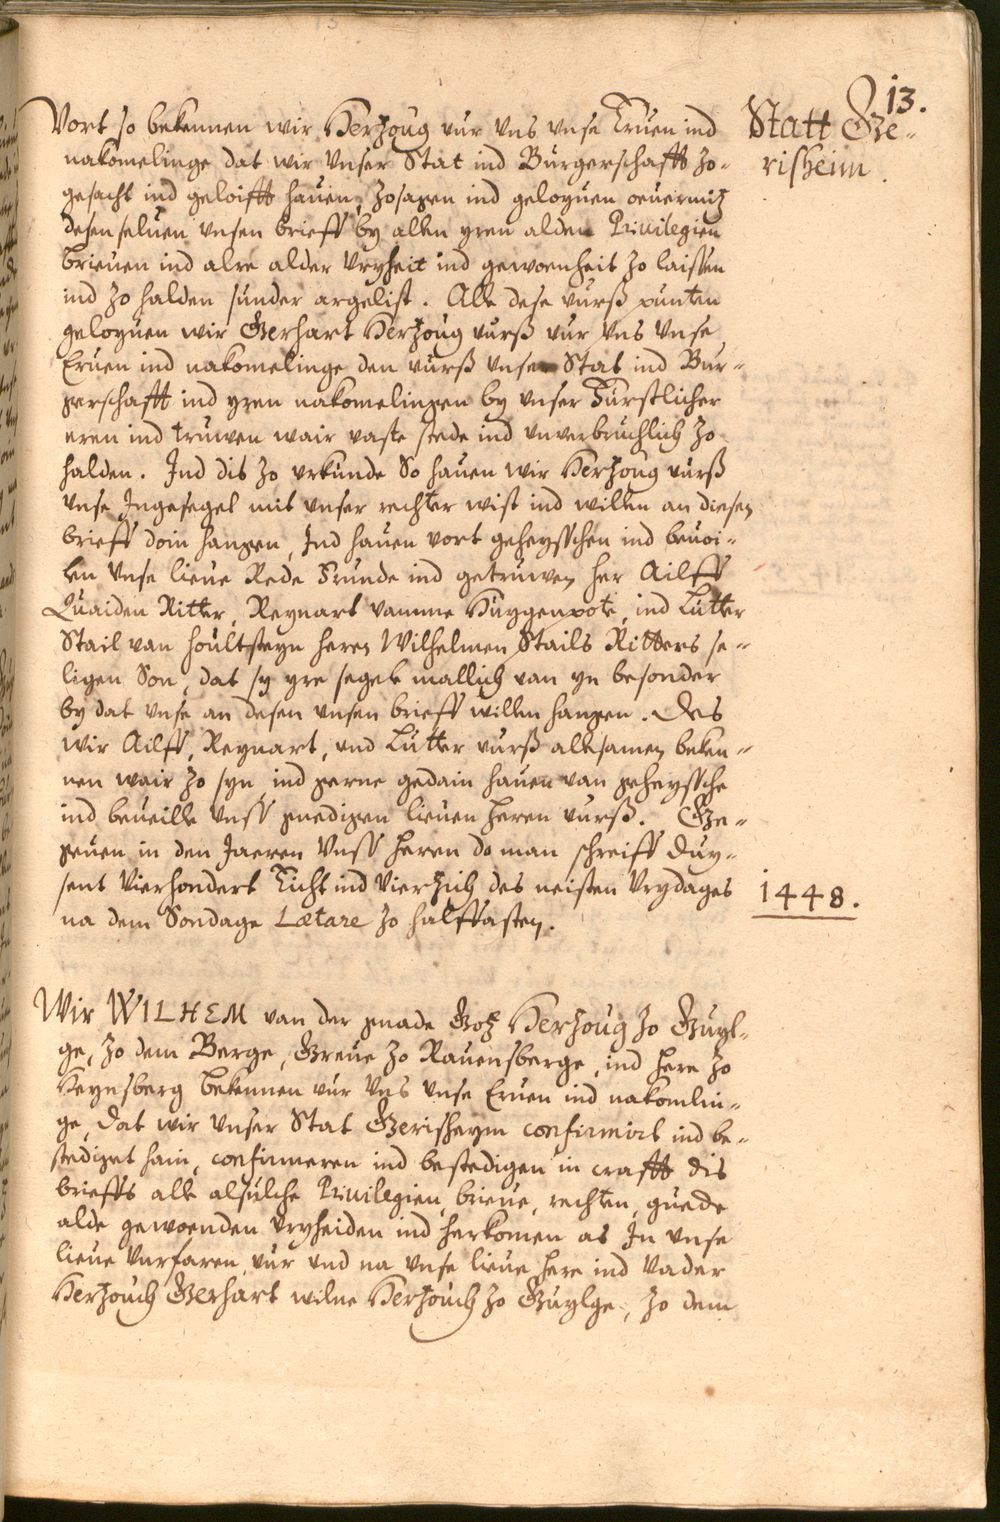 13.
Statt Ge-
risheim.
Vort so bekennen wir Herzoug vur vns vnse Eruen ind
nakomelinge dat wir vnser Stat ind Burgerschafft zo-
gesacht ind geloifft hauen, zosagen ind geloyuen ouermitz
desen seluen vnsen brieff by allen yren alden Priuilegien
brieuen ind alre alder vryheit ind gewoenheit zo laissen
ind zo halden sunder argelist. Alle dese vurß punten
geloyuen wir Gerhart Herzoug vurß vur vns vnse
Eruen ind nakomelinge den vurß vnser Stat ind Bur-
gerschafft ind yren nakomelingen by vnser Furstlicher
eren ind truwen wair vaste stede ind vnverbruchlich zo
halden. Ind dis zo vrkunde So hauen wir Herzoug vurß
vnse Ingesegel mit vnser rechter wist ind willen an diesen
brieff doin hangen, Ind hauen vort geheysschen ind beuoi-
len vnse lieue Rede Frunde ind getruwen her Ailff
Quaiden Ritter, Reynart vamme Huygenpote, ind Lutter
Stail van Houltsteyn heren Wilhelmen Stails Ritters se-
ligen Son, dat sy yre segele mallich van yn besonder
by dat vnse an desen vnsen brieff willen hangen. Des
wir Ailff, Reynart, vnd Lutter vurß allesamen beken-
nen wair zo syn, ind gerne gedain hauen van geheyssche
ind beueille vnss gnedigen lieuen heren vurß. Ge-
geuen in den Jaeren vnss heren do man schreiff duy-
sent Vierhondert Eicht ind Vierzich des neisten Vrydages
na dem Sondage Lætare zo halffasten.
1448.
Wir WILHEM van der gnade Gotz Herzoug zo Guyl-
ge, zo dem Berge, Greue zo Rauensberge, ind here zo
Heynsberg bekennen vur vns vnse Eruen ind nakomlin-
ge, dat wir vnser Stat Gerisheym confirmirt ind be-
stediget hain, confirmeren ind bestedigen in crafft dis
brieffs alle alsulche Priuilegien, brieue, rechten, guede
alde gewoenden vryheiden ind herkomen as In vnse
lieue Vurfaren, vur vnd na vnse lieue here ind Vader
Herzouch Gerhart wilne Herzouch zo Guylge, zo dem